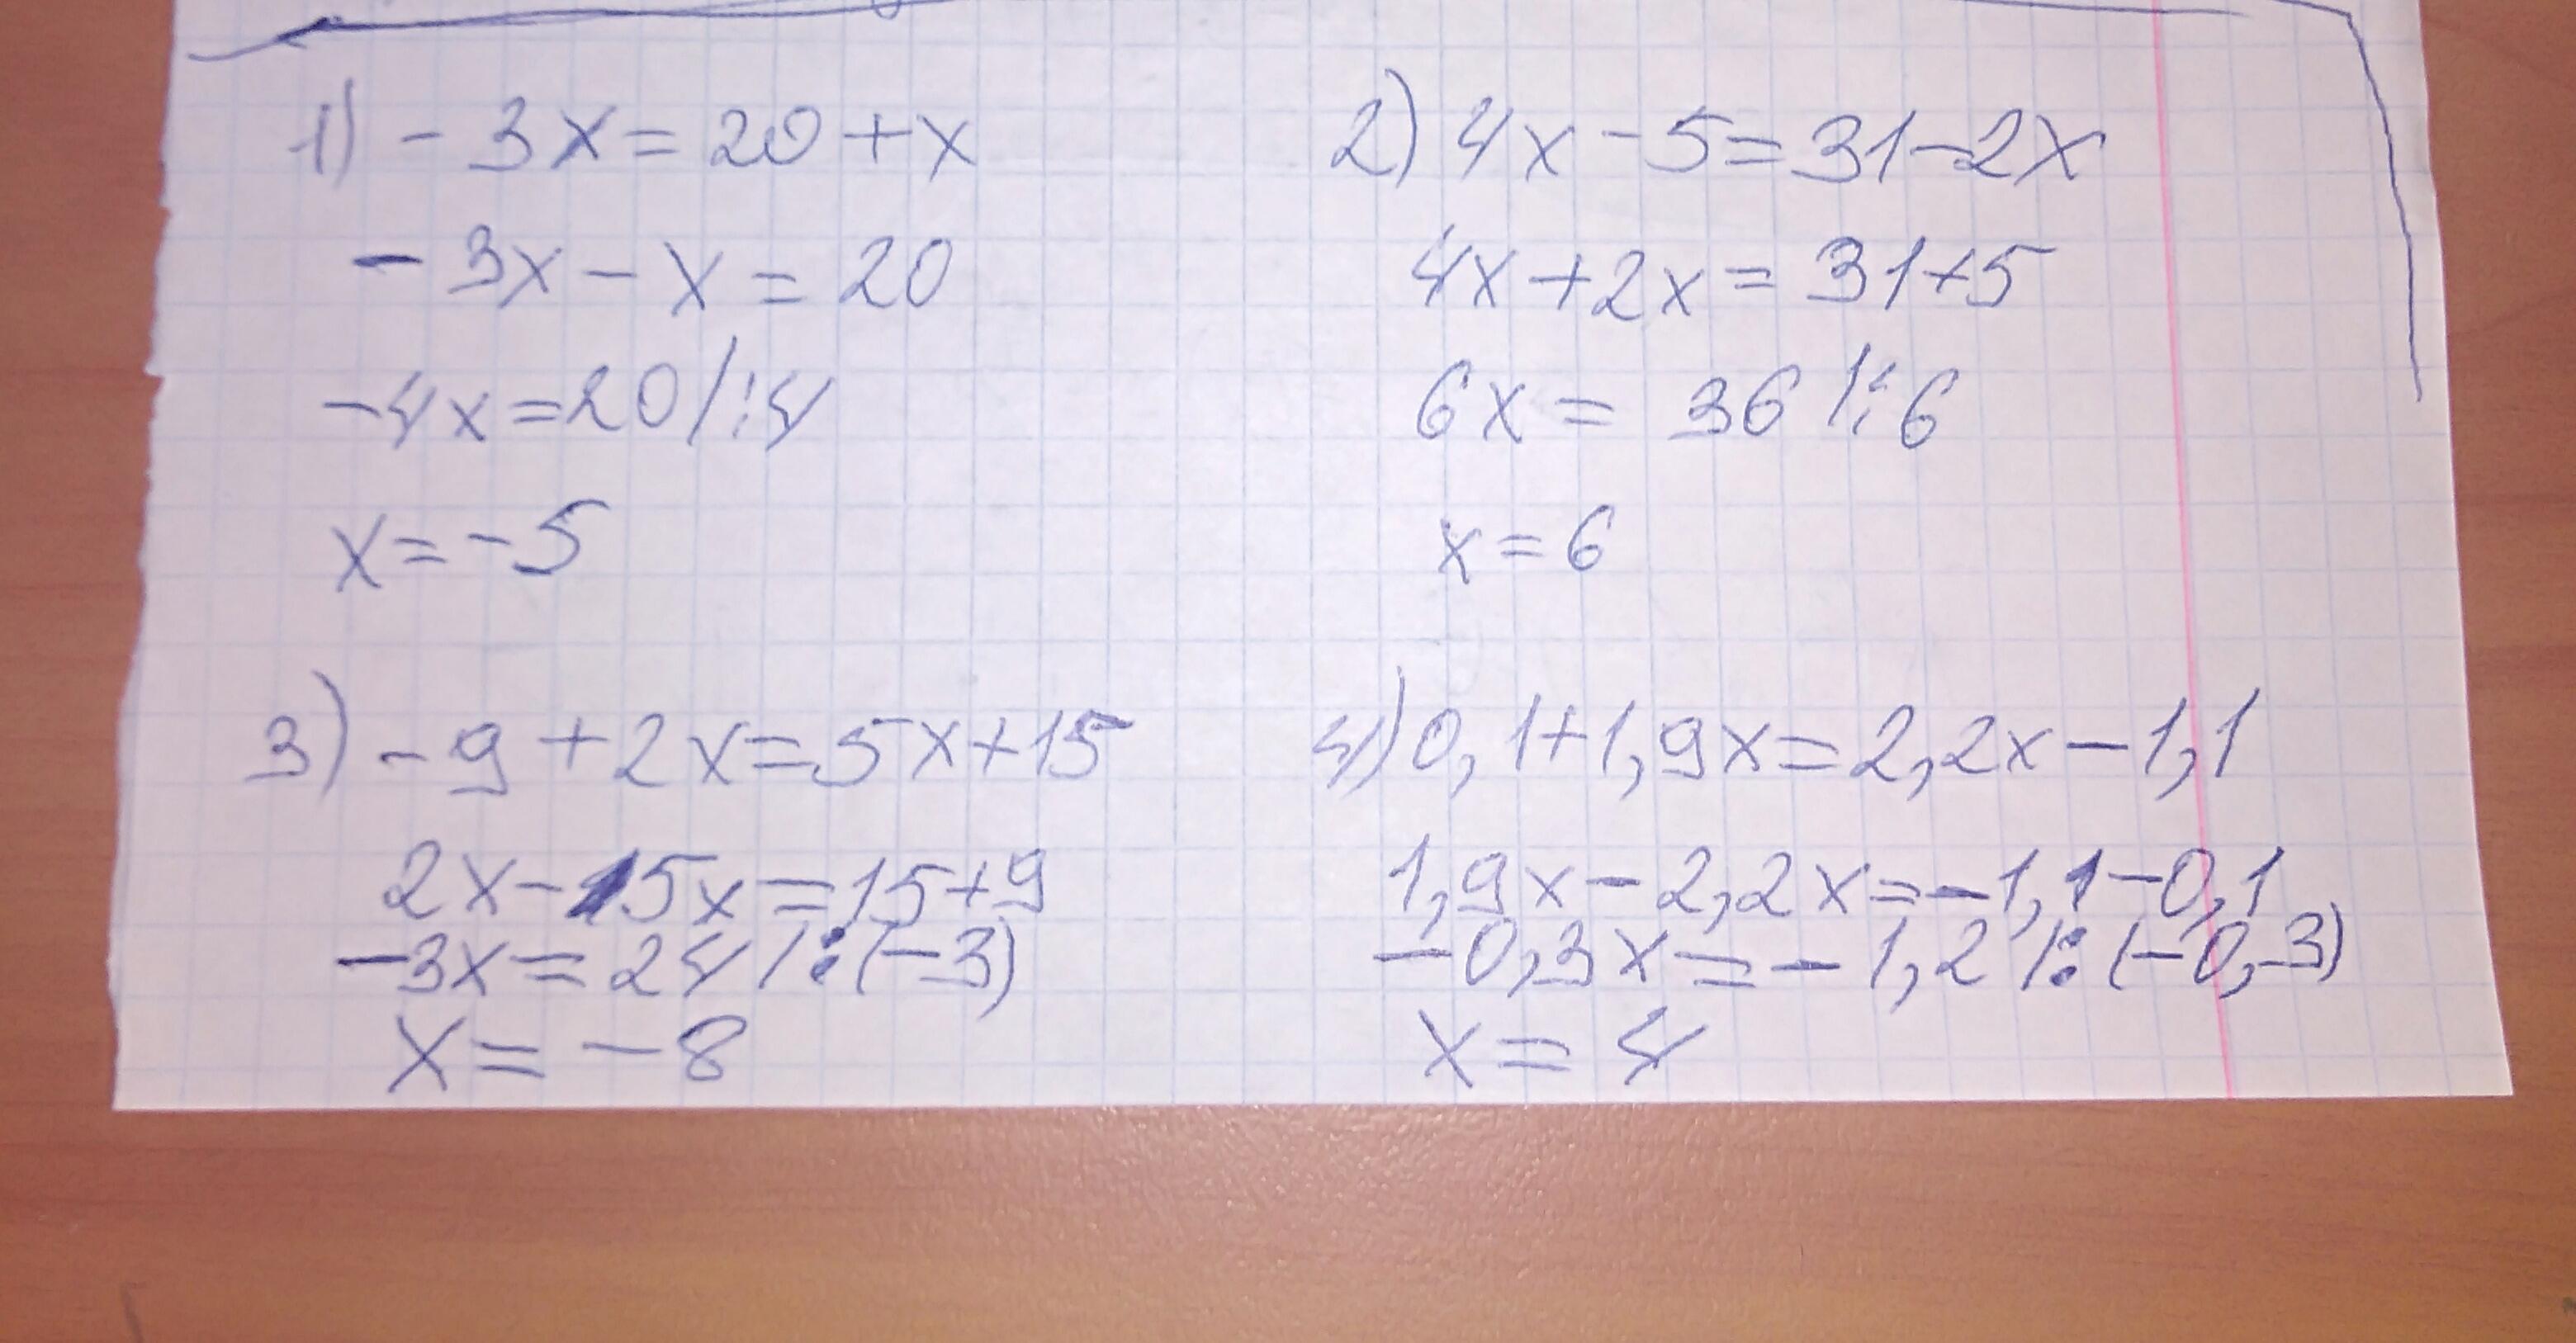 1) - 3x = 20 + x
- 3x - x = 20
-4x = 20 /:4
x = -5
2) 4x - 5 = 31 - 2x
4x + 2x = 31 + 5
6x = 36 /:6
x = 6
3) - 9 + 2x = 5x + 15
2x - 5x = 15 + 9
-3x = 24 /:(-3)
x = -8
4) 0,1 + 1,9x = 2,2x - 1,1
1,9x - 2,2x = -1,1 - 0,1
-0,3x = -1,2 /:(-0,3)
x = 4